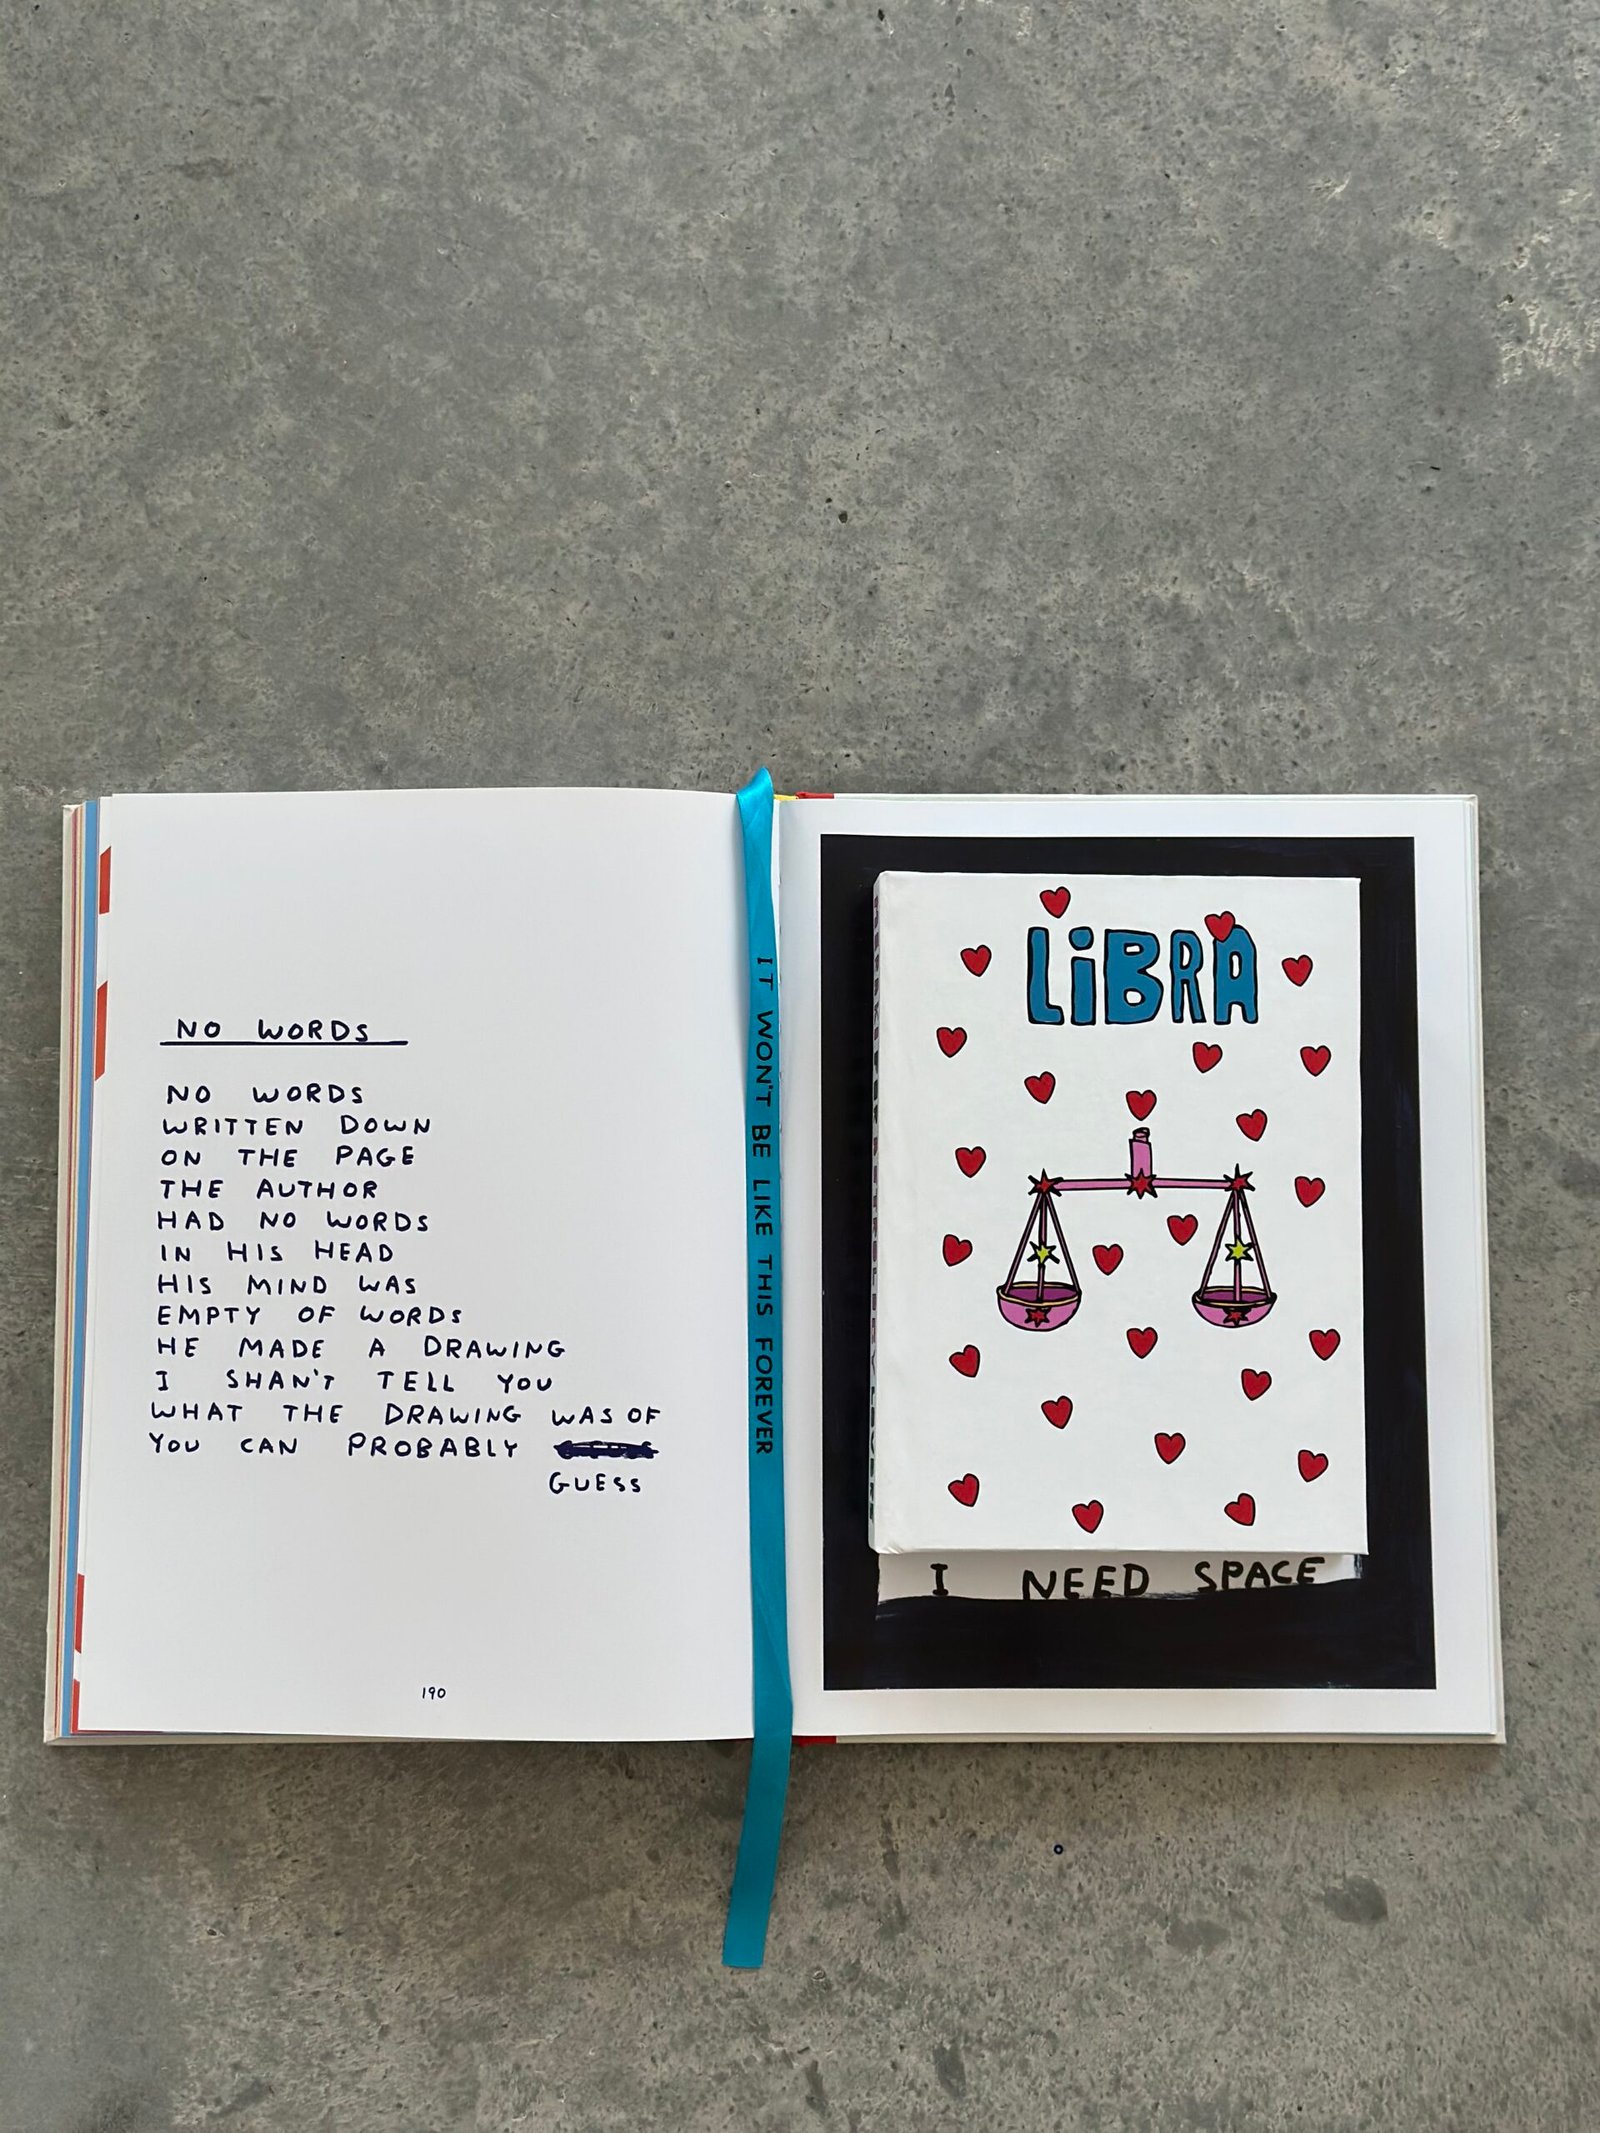 NO WORDS
NO WORDS
WRITTEN DOWN
ON THE PAGE
THE AUTHOR
HAD NO WORDS
IN HIS HEAD
HIS MIND WAS
EMPTY OF WORDS
HE MADE A DRAWING
I SHAN'T TELL YOU
WHAT THE DRAWING WAS OF
YOU CAN PROBABLY
GUESS
190
IT WON'T BE LIKE THIS FOREVER
LiBRA
I NEED SPACE